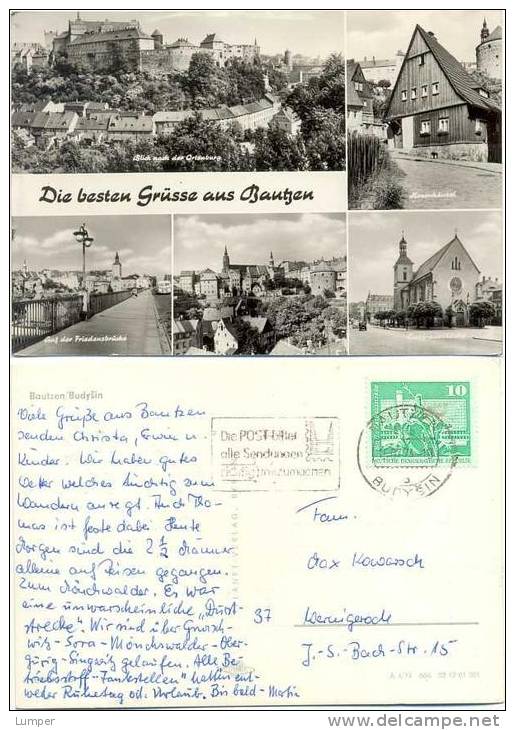 Blick nach der Ortenburg
Hexenhäusel
Die besten Grüsse aus Bautzen
Auf der Friedensbrücke
Bautzen/Budyšin
Viele Grüße aus Bautzen
senden Christa, Erwin u.
Kinder. Wir haben gutes
Wetter welches tüchtig zum
Wandern anregt. Auch Tho-
mas ist feste dabei. Heute
Morgen sind die 2 1/2 Männer
alleine auf Reisen gegangen.
Zum Mönchswalder. Es war
eine unwarscheinliche "Durst-
strecke". Wir sind über Gnasch-
witz-Sora-Mönchswalder-Ober-
gurig-Singwitz gelaufen. Alle Be-
triebsstoff-"Tankstellen" hatten ent-
weder Ruhetag od. Urlaub. Bis bald - Martin
Die POST bittet
alle Sendungen
freizumachen
10
DEUTSCHE DEMOKRATISCHE REPUBLIK
BAUTZEN
BUDYŠIN
Fam.
Max Kowarsch
37 Wernigerode
J.-S.-Bach-Str. 15
Lumper
www.delcampe.net